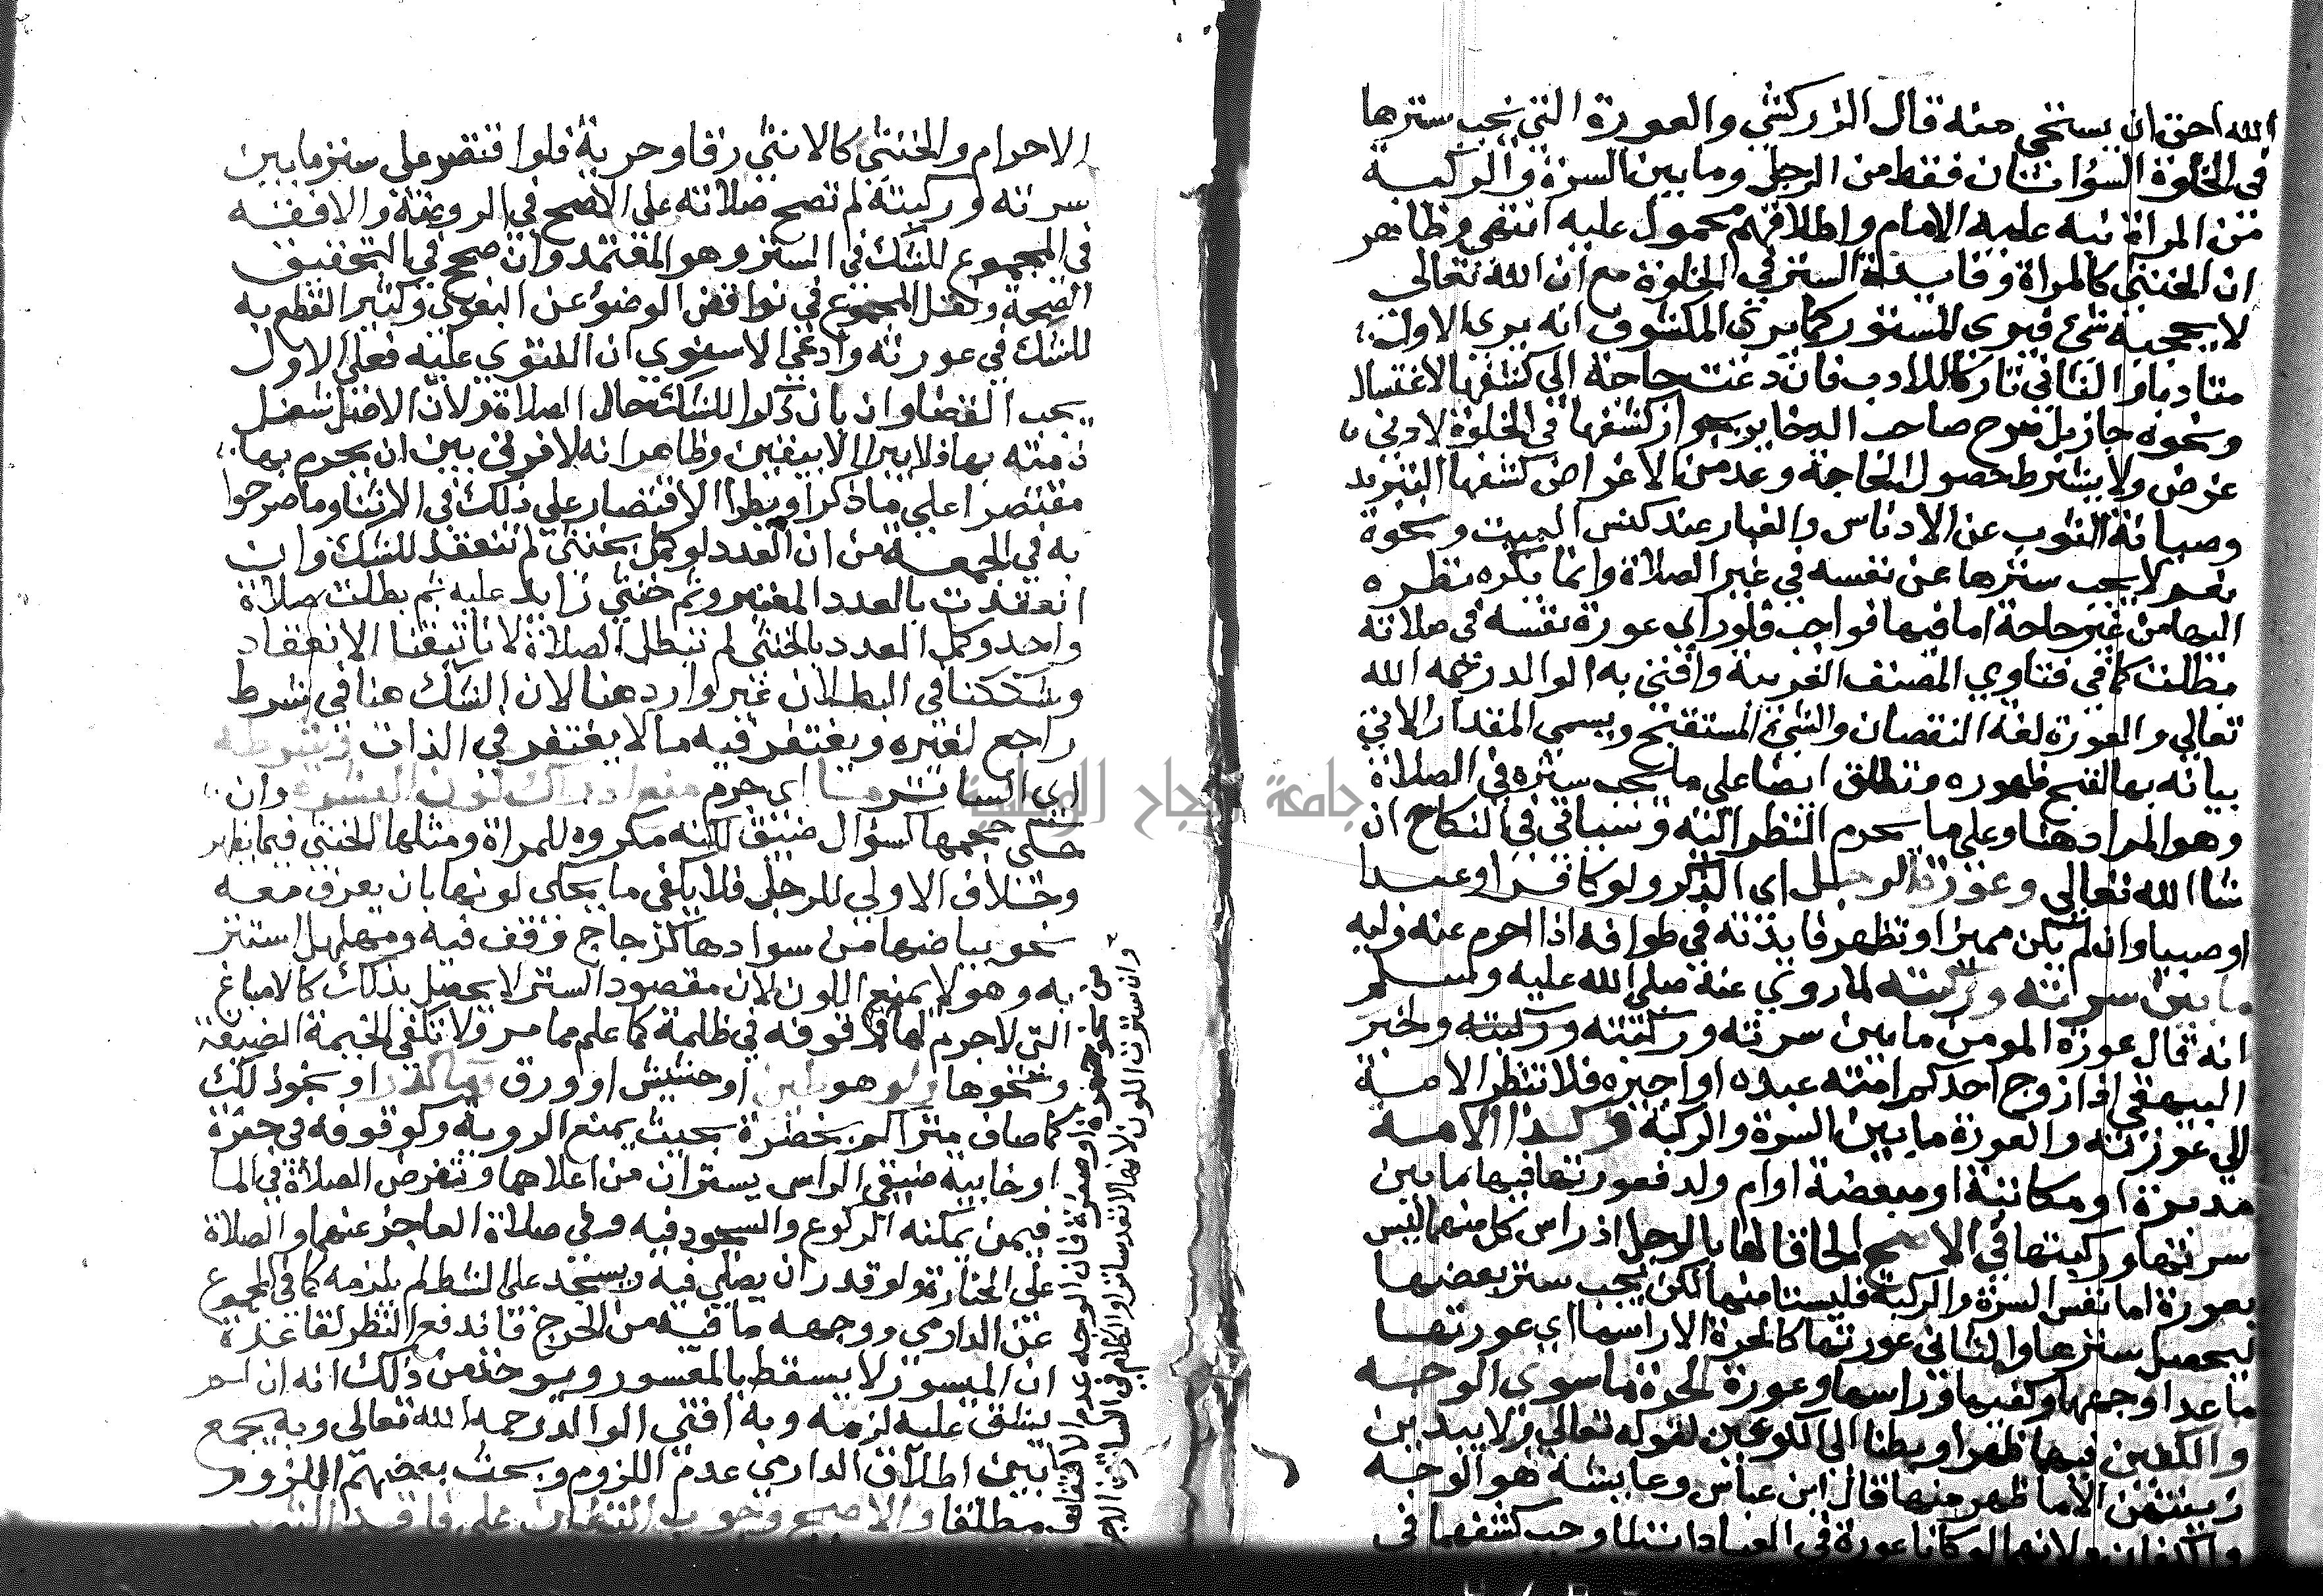 الله احق ان يستحى منه قال الزركشي والعورة التي يجب سترها
في الخلوة السؤاتان فقط من الرجل وما بين السرة والركبة
من المراة نبه عليه الامام واطلاقهم محمول عليه انتهى وظاهر
ان الخنثى كالمراة وفايدة الستر في الخلوة مع ان الله تعالى
لا يحجبه شئ فيرى المستور كما يرى المكشوف انه يرى الاول
متادبا والثاني تاركا للادب فان دعت حاجة الى كشفها لاغتسال
ونحوه جاز بل صرح صاحب الدخاير بجواز كشفها في الخلوة لادنى
غرض ولا يشترط حصول الحاجة وعد من الاغراض كشفها التبريد
وصيانة الثوب عن الادناس والغبار عند كنس البيت ونحوه
نعم لا يجب سترها عن نفسه في غير الصلاة وانما يكره نظره
اليها من غير حاجة اما فيها فواجب فلو راى عورة نفسه في صلاته
بطلت كما في فتاوي المصنف الغريبة وافتى به الوالد رحمه الله
تعالى والعورة لغة النقصان والشئ المستقبح ويسمى المقدار الاتي
بيانه بها لقبح ظهوره وتطلق ايضا على ما يجب ستره في الصلاة
وهو المراد هنا وعلى ما يحرم النظر اليه وسياتي في النكاح ان
شا الله تعالى وعورة الرجل اى الذكر ولو كافرا او عبدا
او صبيا وان لم يكن مميزا وتظهر فايدته في طوافه اذا احرم عنه وليه
ما بين سرته وركبته لما روي عنه صلى الله عليه وسلم
انه قال عورة المومن ما بين سرته وركبته وركبته ولخبر
البيهقي اذا زوج احدكم امته عبده او اجيره فلا تنظر الامة
الى عورته والعورة ما بين السرة والركبة وكذا الامة
مدبرة او مكاتبة او مبعضة او ام ولد فعورتها فيها ما بين
سرتها وركبتها في الاصح الحاقا لها بالرجل اذ راس كل منهما ليس
بعورة اما نفس السرة والركبة فليستا منها لكن يجب ستر بعضها
ليحصل سترها والثاني عورتها كالحرة الا راسها اي عورتها
ما عدا وجهها وكفيها وراسها وعورة الحرة ما سوى الوجه
والكفين فيها ظهرا وبطنا الى الكوعين لقوله تعالى ولا يبدين
زينتهن الا ما ظهر منها قال ابن عباس وعايشة هو الوجه
والكفان ولانهما لو كانا عورة في العبادات لما وجب كشفهما في
الاحرام والخنثى كالانثى رقا وحرية فلو اقتصر على ستر ما بين
سرته وركبته لم تصح صلاته على الاصح في الروضة والافقه
في المجموع للشك في الستر وهو المعتمد وان صحح في التحقيق
الصحة ونقل المجموع في نواقض الوضوء عن البغوي وكثير القطع به
للشك في عورته وادعى الاسنوي ان الفتوي عليه فعلى الاول
يجب القضا وان بان ذكرا للشك حال الصلاة ولان الاصل شغل
ذمته بها فلا يبرا الا بيقين وظاهر انه لا فرق بين ان يحرم بها
مقتصرا على ما ذكر او يطرا الاقتصار على ذلك في الاثنا وما صرحوا
به في الجمعة من ان العدد لو كمل بخنثى لم تنعقد للشك وان
انعقدت بالعدد المعتبر وثم خنثى زايد عليه ثم بطلت صلاة
واحد وكمل العدد بالخنثى لم تبطل الصلاة لانا تيقنا الانعقاد
وشككنا في البطلان غير وارد هنا لان الشك هنا في شرط
راجع لغيره ويغتفر فيه ما لا يغتفر في الذات وشرطه
اى الساتر ما اى جرم منع ادراك لون البشرة وان
حكى حجمها كسروال ضيق لكنه مكروه للمراة ومثلها الخنثى فيما يظهر
وخلاف الاولى للرجل فلا يكفى ما يحكى لونها بان يعرف معه
نحو بياضها من سوادها كزجاج وقف فيه ومهلهل استتر
به وهو لا يمنع اللون لان مقصود الستر لا يحصل بذلك كالاصباغ
التى لا جرم لها ووقوفه في ظلمة كما علم مما مر ولا تكفى الخيمة الضيقة
ونحوها ولو هو طين او حشيش او ورق وما كدر او نحو ذلك
كماصاف متراكم بخضرة بحيث يمنع الروية وكوقوفه في حفرة
او خابية ضيقى الراس يستران من اعلاها وتفرض الصلاة في الما
فيمن يمكنه الركوع والسجود فيه وفي صلاة العاجز عنهما والصلاة
على الجنازة ولو قدر ان يصلي فيه ويسجد على الشط لم يلزمه كما في المجموع
عن الدارمي ووجهه ما فيه من الحرج فاندفع النظر لقاعدة
ان الميسور لا يسقط بالمعسور ويوخذ من ذلك انه ان لم
يشق عليه لزمه وبه افتى الوالد رحمه الله تعالى وبه يجمع
بين اطلاق الدارمي عدم اللزوم وبحث بعضهم اللزوم
مطلقا والاصح وجوب التطين على فاقد الثوب
جامعة النجاح الوطنية